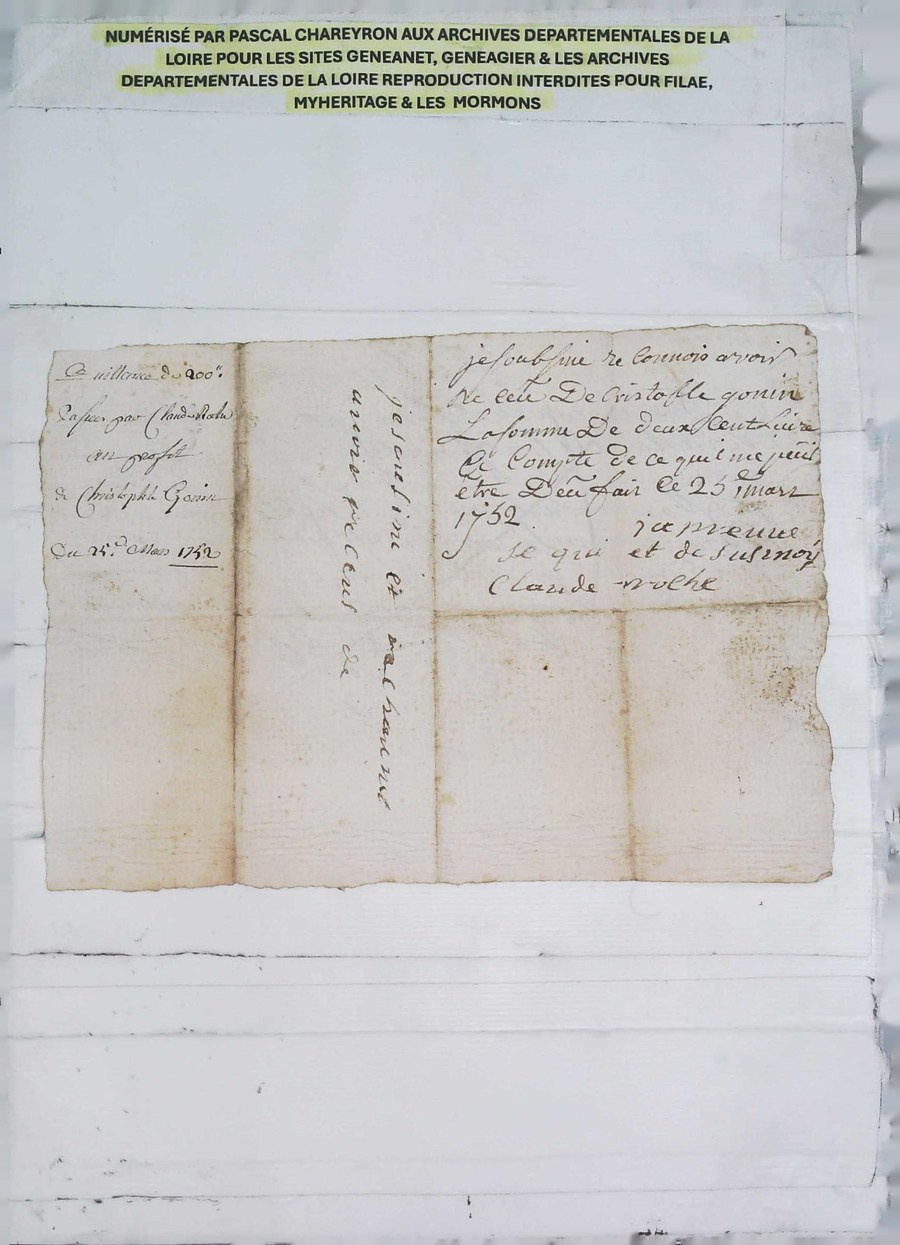 NUMÉRISÉ PAR PASCAL CHAREYRON AUX ARCHIVES DEPARTEMENTALES DE LA
LOIRE POUR LES SITES GENEANET, GENEAGIER & LES ARCHIVES
DEPARTEMENTALES DE LA LOIRE REPRODUCTION INTERDITES POUR FILAE,
MYHERITAGE & LES MORMONS
Quittance de 200ᵗᵗ
passee par Claude Roche
au profit
de Christophle Gonin
Du 25ᵉ Mars 1752
je sousine et
de
je soubsine re Connois avoir
Re ceu De Cristofle gonin
La somme De deux Cent Livre
à Compte de ce quil me peut
être Deu fait ce 25 mars
1752 japreuve
se qui et de susmoy
Claude roche